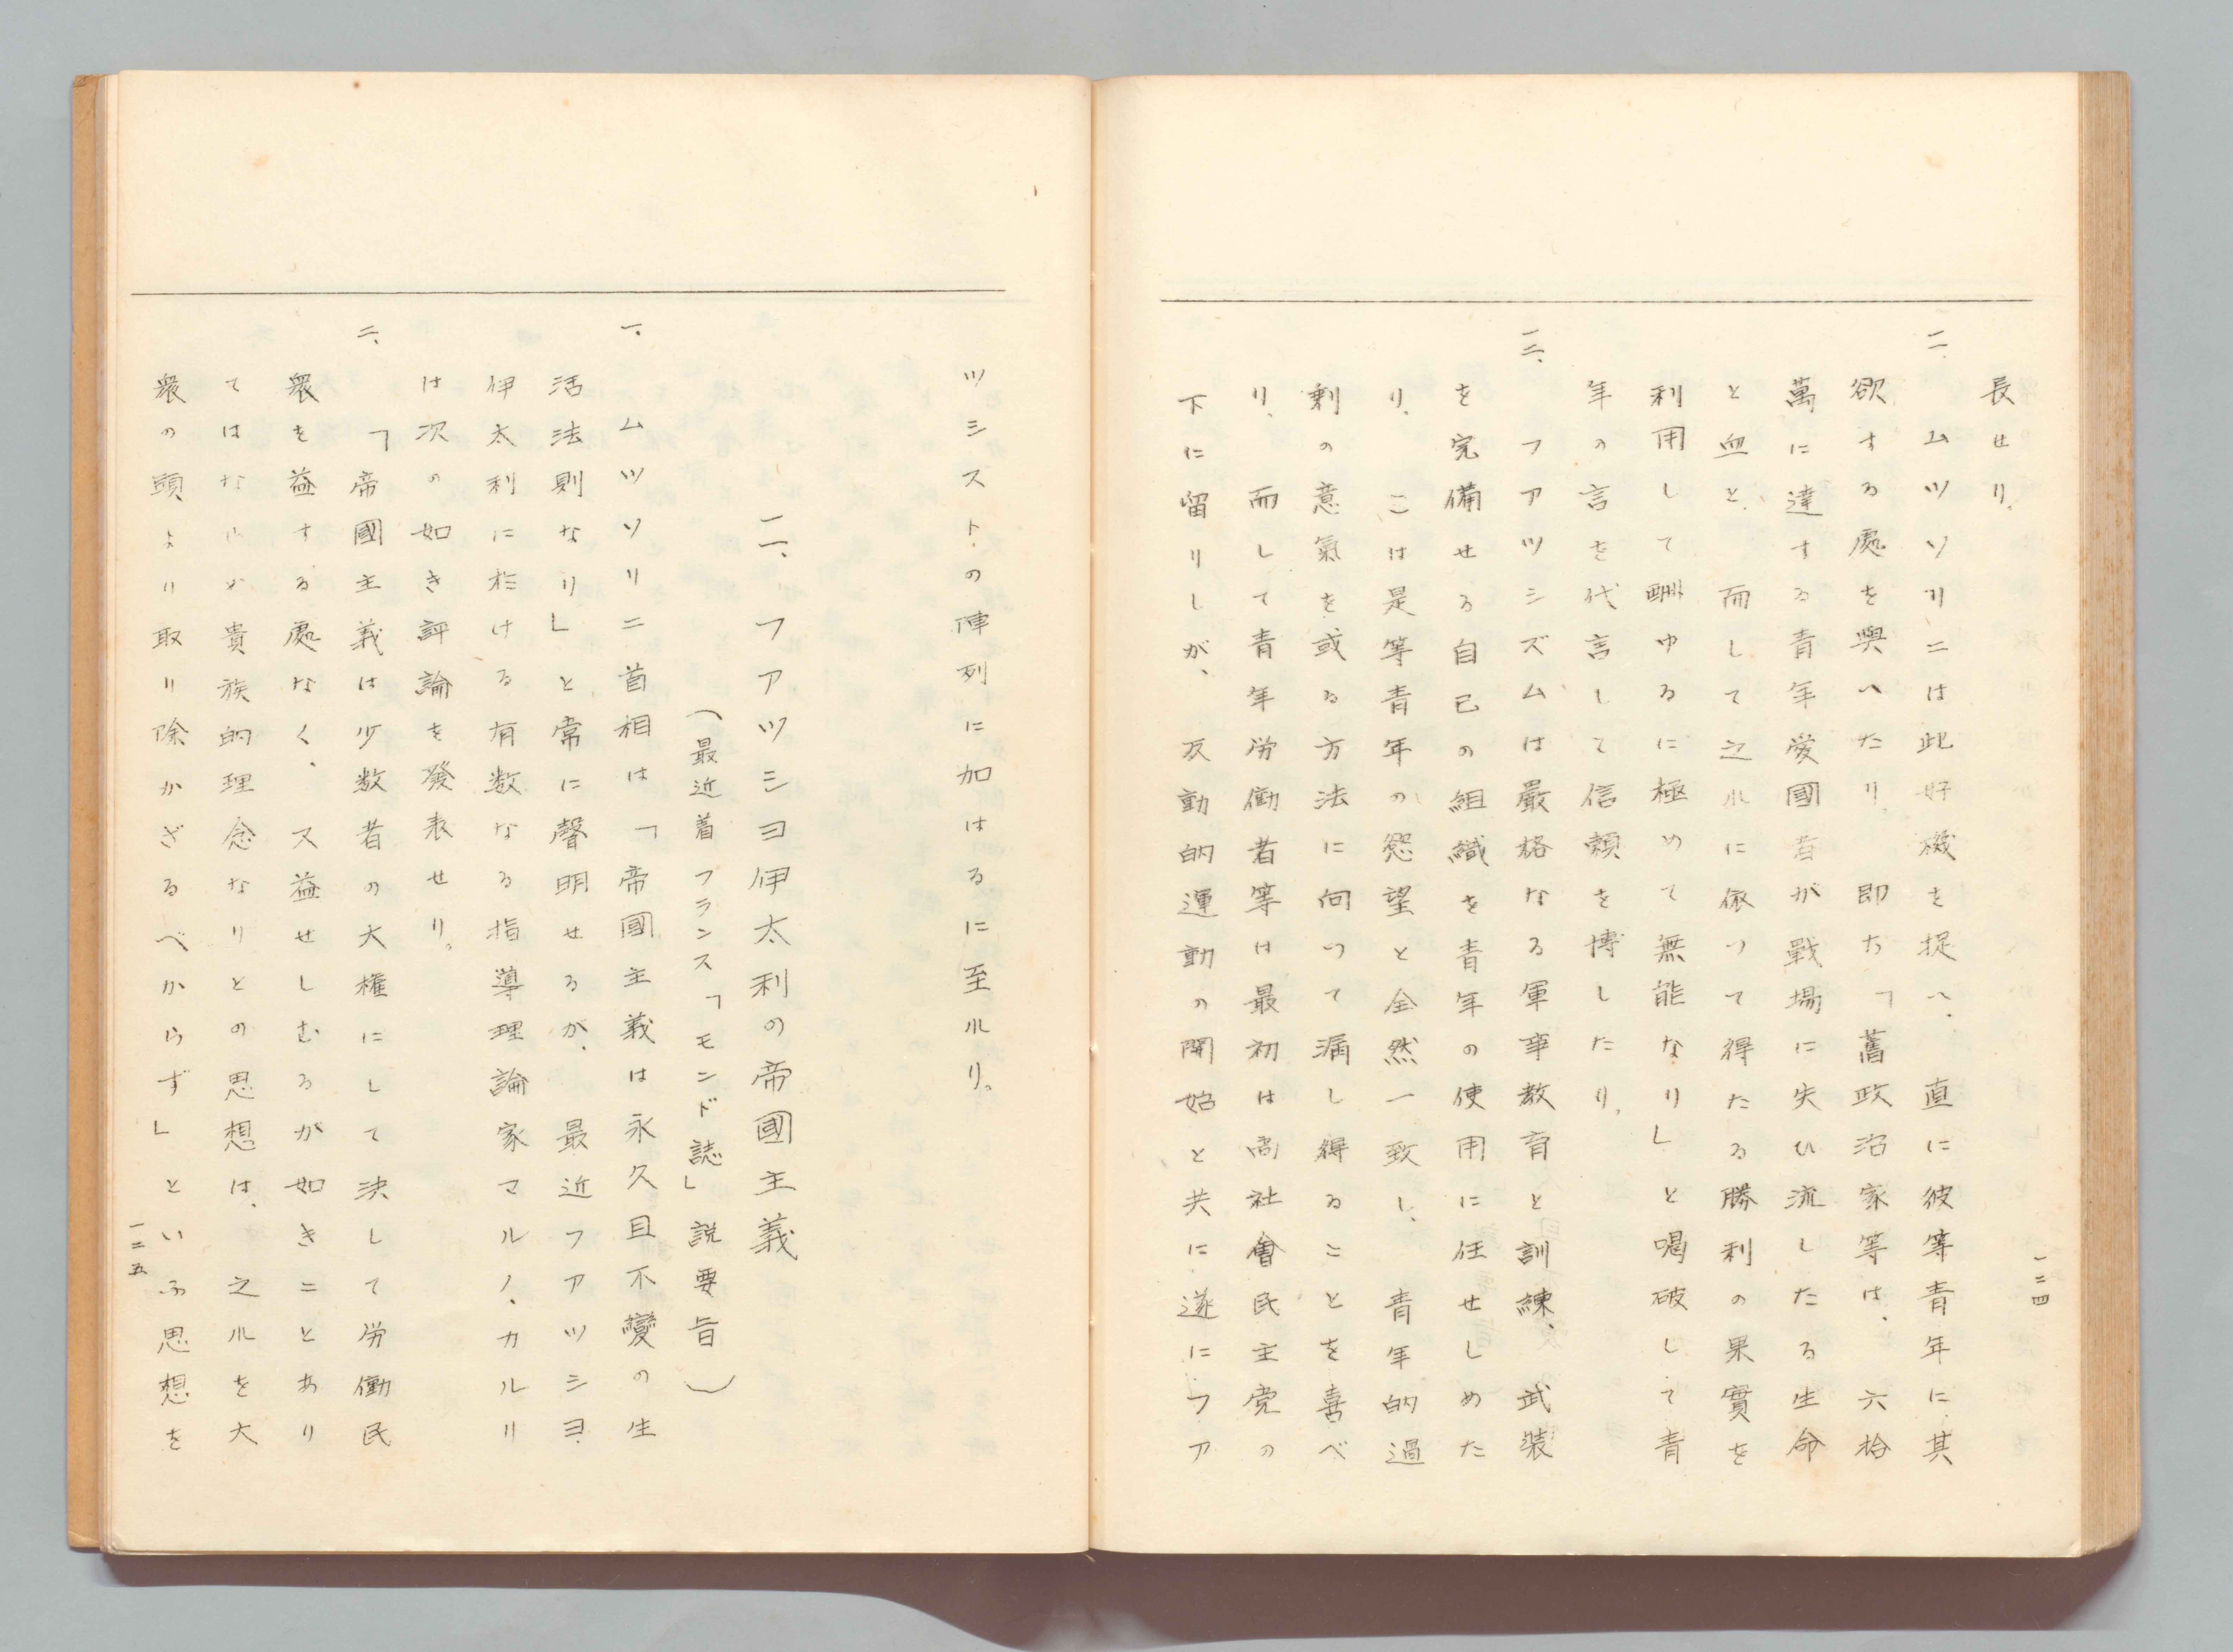 長せり。
二、ムツソリニは此好機を捉へ、直に彼等青年に其
欲する處を與へたり。即ち「舊政治家等は、六拾
萬に達する青年愛國者が戰場に失ひ流したる生命
と血と、而して之れに依つて得たる勝利の果實を
利用して酬ゆるに極めて無能なり」と喝破して青
年の言を代言して信頼を博したり。
三、フアツシズムは嚴格なる軍事教育と訓練、武装
を完備せる自己の組織を青年の使用に任せしめた
り、こは是等青年の慾望と全然一致し、青年的過
剰の意氣を或る方法に向つて漏し得ることを喜べ
り、而して青年労働者等は最初は尚社會民主党の
下に留りしが、反動的運動の開始と共に遂にフア
一二四
ツシストの陣列に加はるに至れり。
二、フアツシヨ伊太利の帝國主義
(最近着フランス「モンド誌」説要旨)
一、ムツソリニ首相は「帝國主義は永久且不變の生
活法則なり」と常に聲明せるが、最近フアツシヨ、
伊太利に於ける有数なる指導理論家マルノ、カルリ
は次の如き評論を發表せり。
二、「帝國主義は少数者の大権にして決して労働民
衆を益する處なく、又益せしむるが如きことあり
てはならぬが貴族的理念なりとの思想は、之れを大
衆の頭より取り除かざるべからず」といふ思想を
一二五